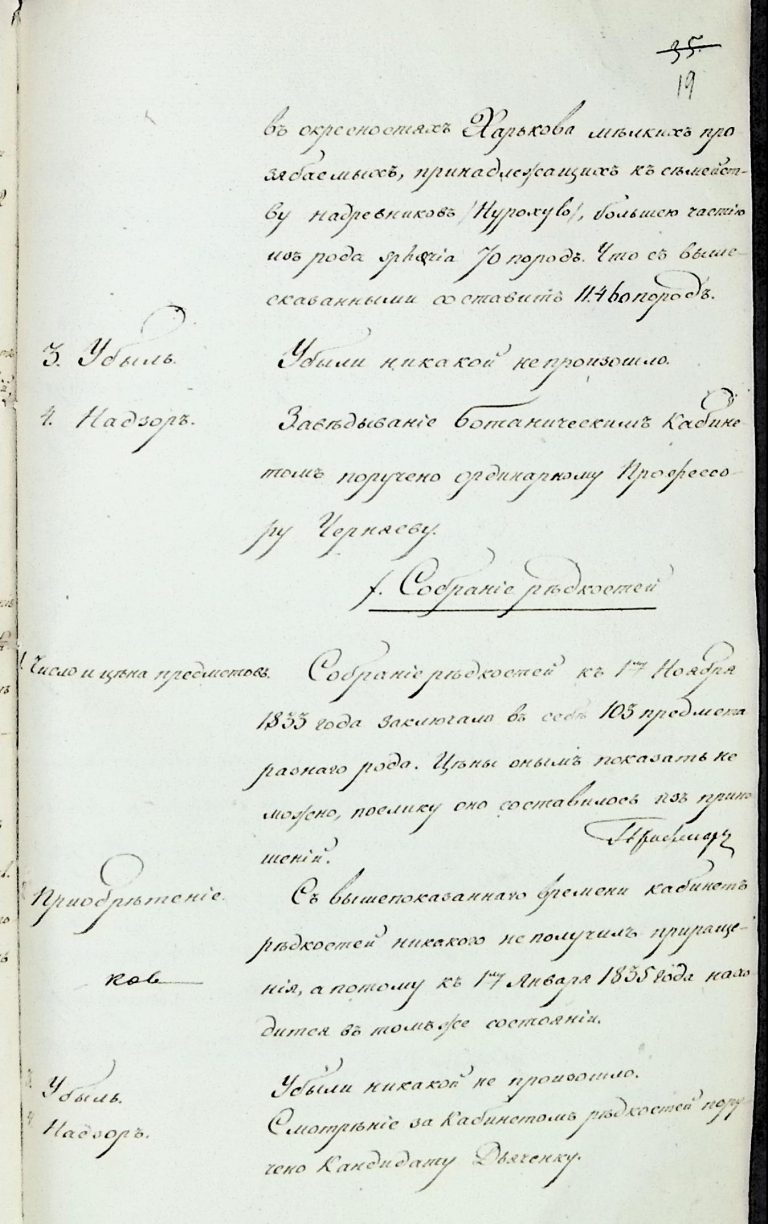 35.
19
въ окресностяхъ Харькова мѣлкихъ про
зябаемыхъ, принадлежащихъ къ сѣмейст-
ву надревниковъ, большею частію
изъ рода 70 породъ. Что съ выше-
сказанными составитъ 11.460 породъ.
3. Убыль. Убыли никакой не произошло.
4. Надзоръ. Завѣдываніе Ботаническимъ Кабине
томъ поручено ординарному Профессо-
ру Черняеву.
f. Собраніе рѣдкостей
1. Число и цѣна предметовъ. Собраніе рѣдкостей къ 1му Ноября
1833 года заключало въ себѣ 103 предмета
разнаго рода. Цѣны онымъ показать не
можно, поелику оно составилось изъ прино
шеній.
Приобрѣтеніе. Съ вышепоказаннаго времени кабинетъ
рѣдкостей никакого не получилъ прираще-
ков нія, а потому къ 1му Января 1835 года нахо
дится въ томъ же состояніи.
3. Убыль. Убыли никакой не произошло.
4. Надзоръ. Смотрѣніе за Кабинетомъ рѣдкостей пору-
чено Кандидату Дьяченку.